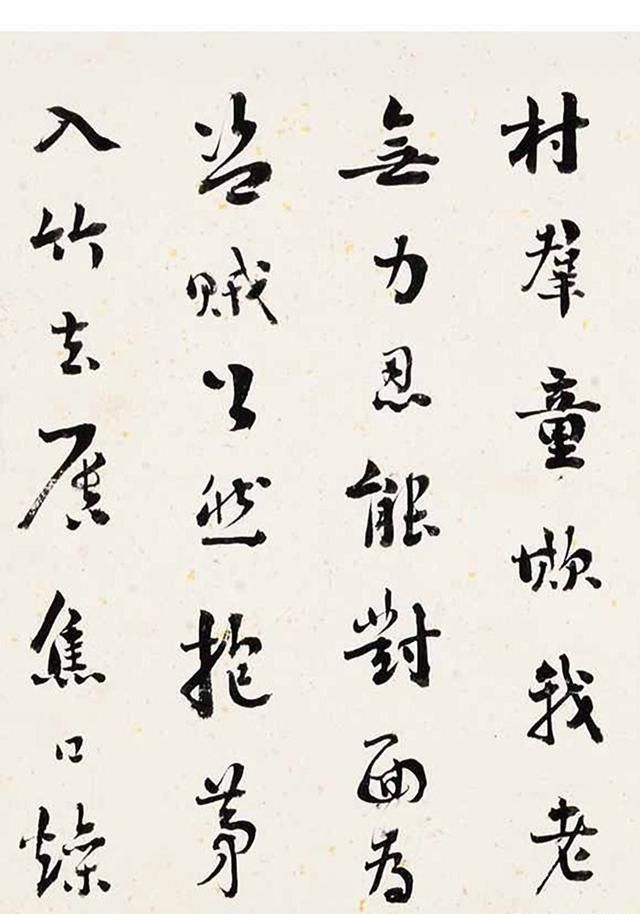 村羣童欺我老
無力忍能對面為
盜賊公然抱茅
入竹去唇焦口燥